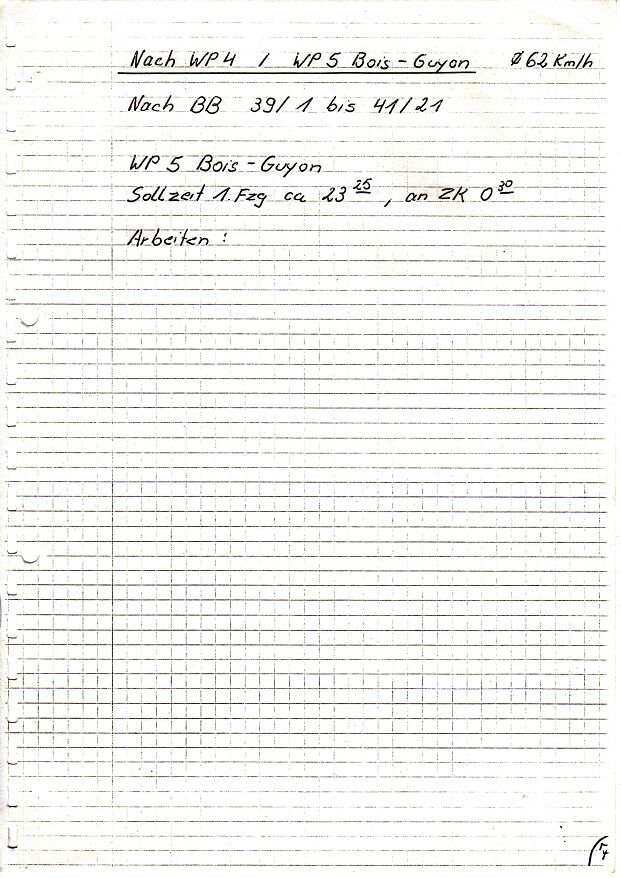 Nach WP4 / WP 5 Bois-Guyon Ø 62 Km/h
Nach BB 39/1 bis 41/21
WP 5 Bois-Guyon
Sollzeit 1. Fzg ca 23 25 , an ZK 0 30
Arbeiten :